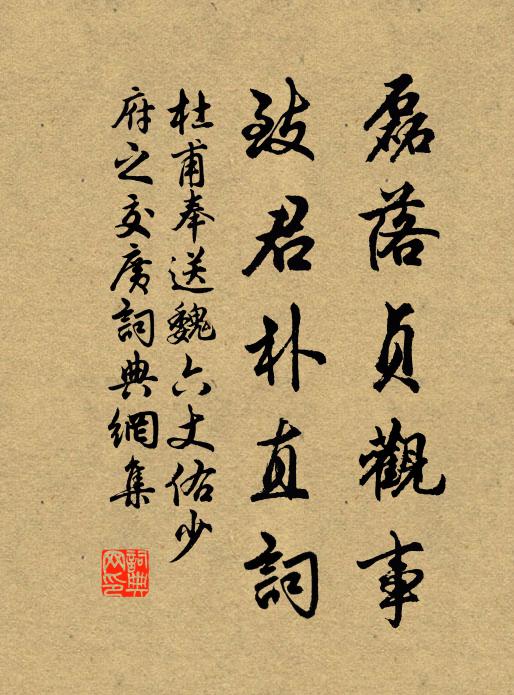 磊落貞觀事
致君朴直詞
杜甫奉送魏六丈佑少
府之交廣詞典網集
詞典
网印